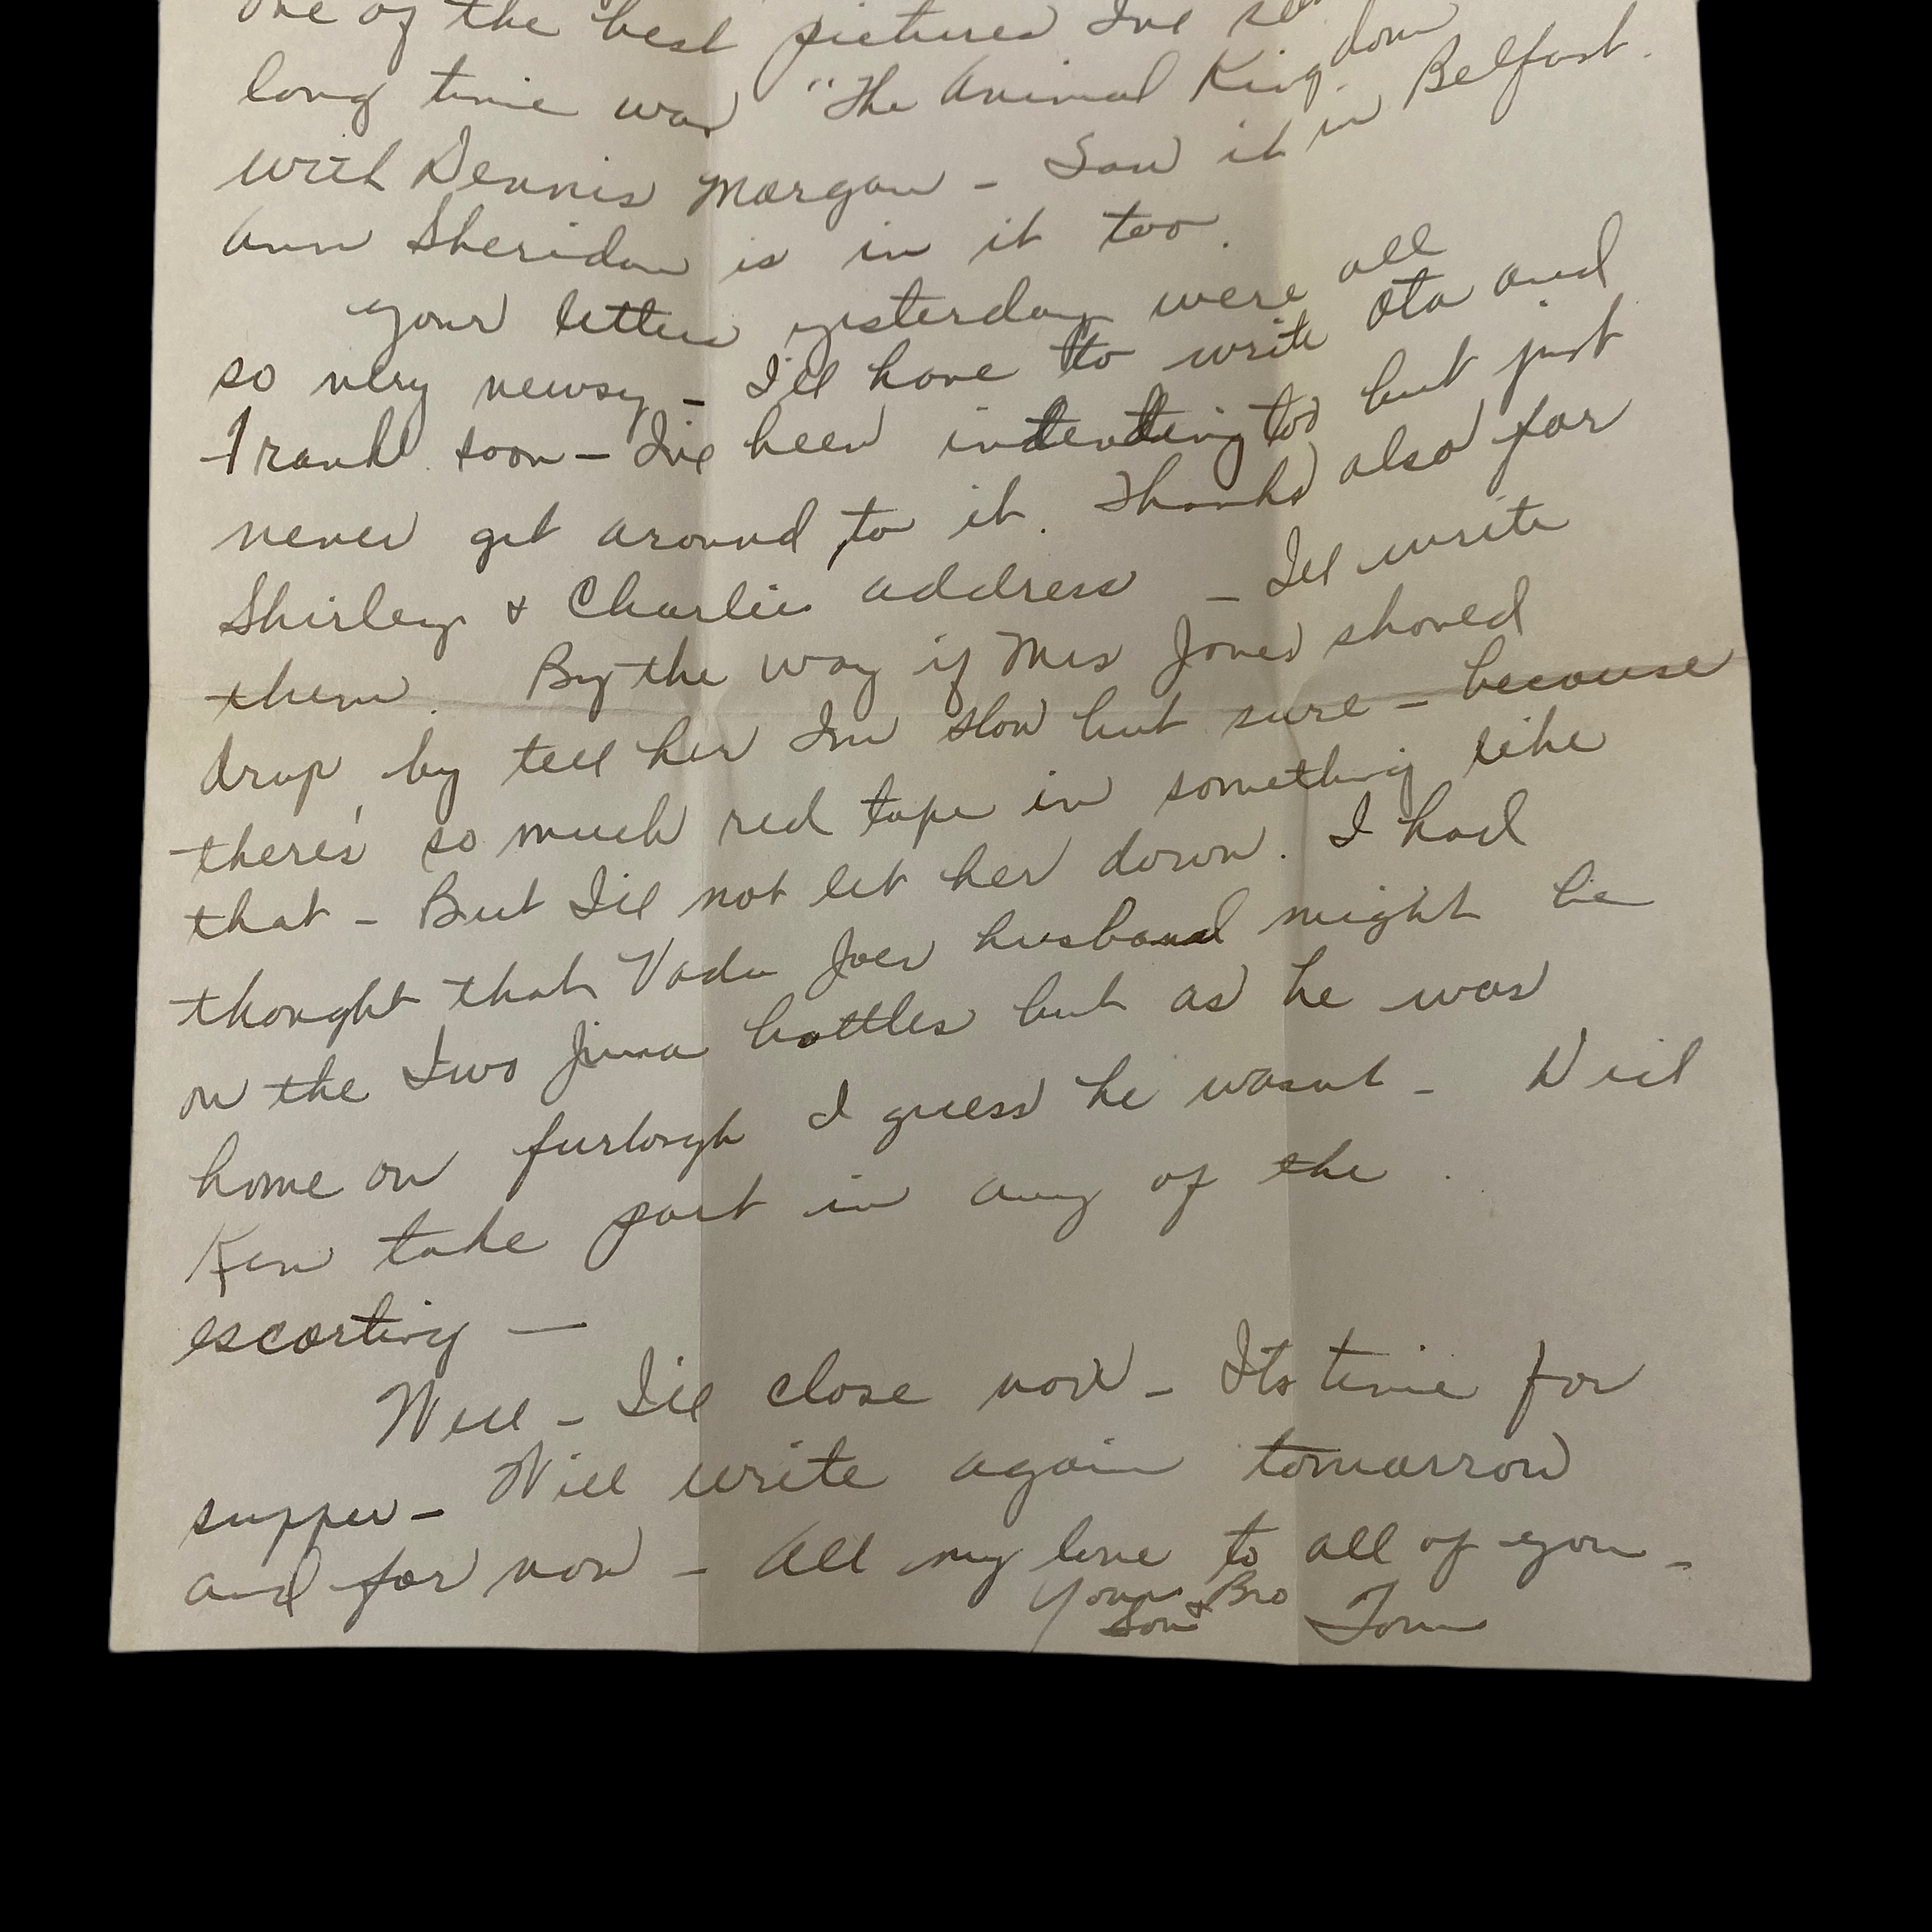 one of the best pictures Ive
long time was "The Animal Kingdom
with Dennis Morgan - Saw it in Belfast.
Ann Sheridan is in it too.
your letters yesterday were all
so very newsy - I'll have to write Ota and
Frank soon - Ive been intending to but just
never get around to it. Thanks also for
Shirley & Charlies address - Ill write
them. By the way if Mrs Jones should
drop by tell her Im slow but sure - because
there's so much red tape in something like
that - But Ill not let her down. I had
thought that Vada Joes husband might be
on the Iwo Jima battles but as he was
home on furlough I guess he wasnt - Did
Ken take part in any of the
escorting -
Well - Ill close now - Its time for
supper - Will write again tomorrow
and for now - All my love to all of you -
Your Son & Bro Tom